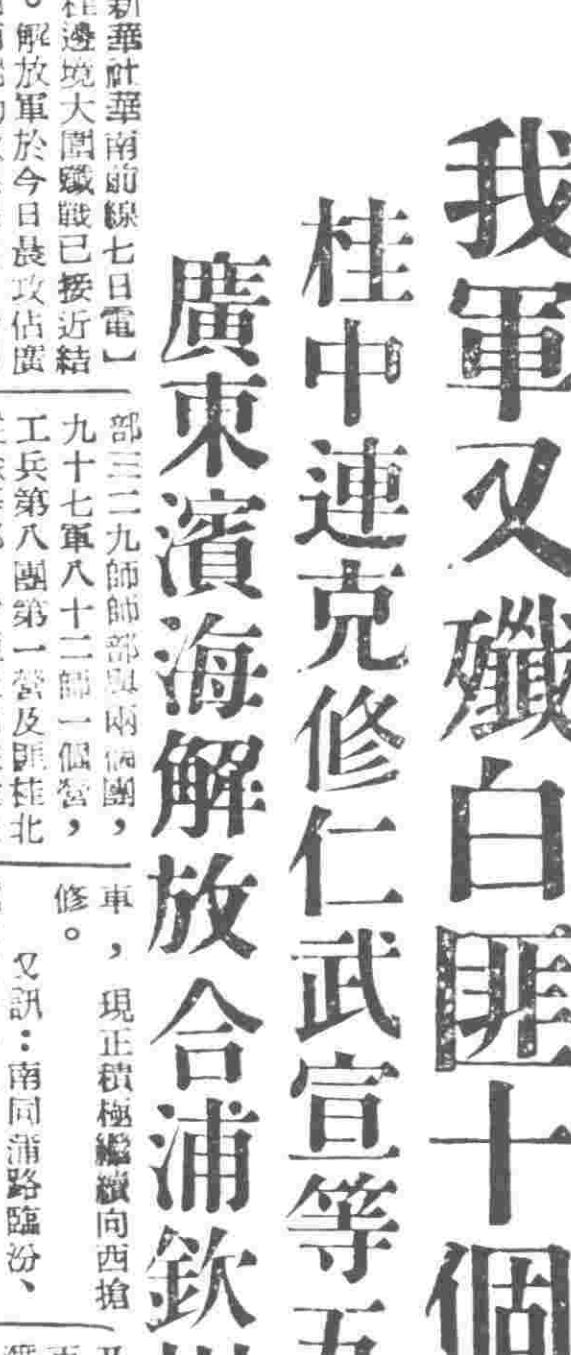 我軍又殲白匪十個
桂中連克修仁武宣等五
廣東濱海解放合浦欽
新華社華南前線七日電】
桂邊境大圍殲戰已接近結
。解放軍於今日晨攻佔廣
部三二九師師部與兩個團，
九十七軍八十二師一個營，
工兵第八團第一營及匪桂北
車，現正積極繼續向西搶
修。
又訊：南同蒲路臨汾、